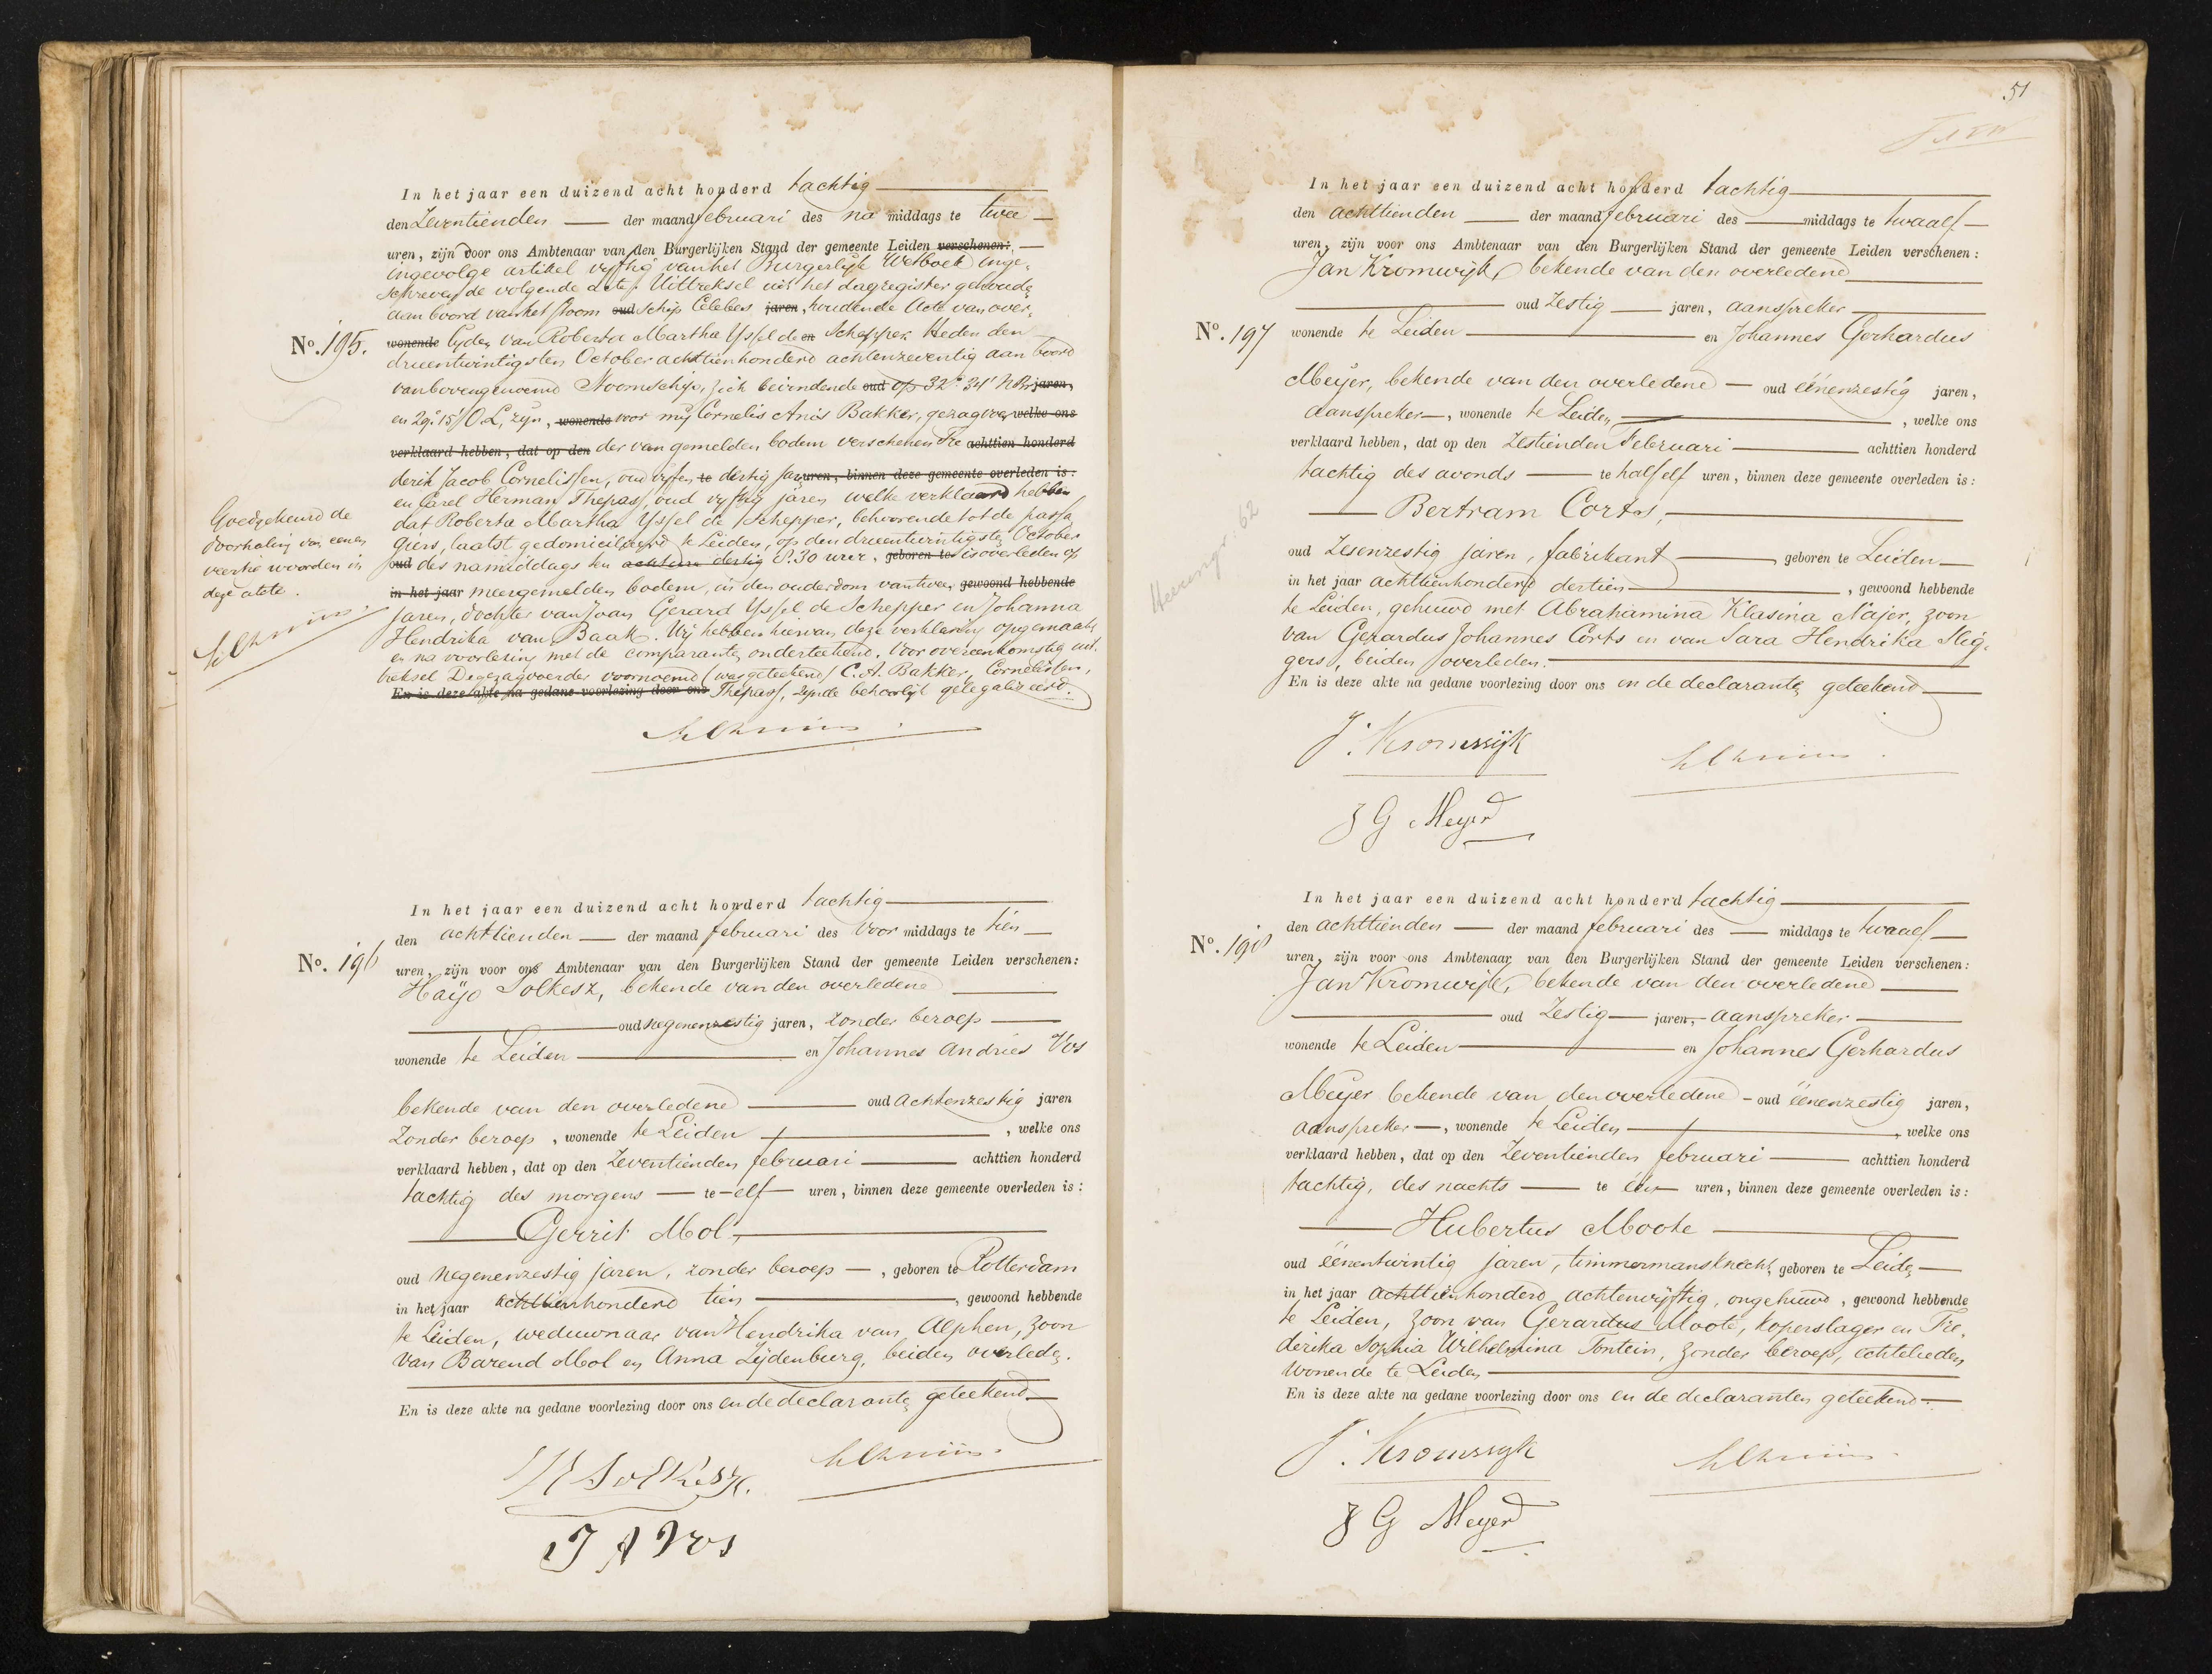 In het jaar een duizend acht honderd tachtig
den Zeventienden der maand februari des na middags te twee
uren, zijn door ons Ambtenaar van den Burgerlijken Stand der gemeente Leiden verschenen:
ingevolge artikel vyftig van het Burgerlyk Wetboek inge-
schreven de volgende acte. Uittreksel uit het dagregister gehouden
aan boord van het stoom oud schip Celebes jaren, houdende Acte van over-
No. 195. wonende lyden van Roberta Martha Yssel de en Schepper. Heden den
drieentwintigsten October achttienhonderd achtenzeventig aan boord
van bovengenoemd Stoomschip, zich bevindende oud op 32° 34' N.Br jaren,
en 29° 15' O.L, zyn, wonende voor my Cornelis Anis Bakker, gezagvoer welke ons
verklaard hebben, dat op den der van gemelden bodem verschenen Fre achttien honderd
derik Jacob Cornelissen, oud vyfen te dertig jaren uren, binnen deze gemeente overleden is:
en Carel Herman Thepass, oud vyftig jaren welke verklaard hebben
dat Roberta Martha Yssel de Schepper, behoorende tot de passa
giers, laatst gedomicilieerd te Leiden, op den drieentwintigsten October
oud des namiddags ten achtuur dertig 8.30 ure, geboren te is overleden op
in het jaar meergemelden bodem, in den ouderdom van twee gewoond hebbende
jaren, dochter van Joan Gerard Yssel de Schepper en Johanna
Hendrika van Baak. Wy hebben hiervan deze verklaring opgemaakt
en na voorlezing met de comparanten onderteekend. Voor overeenkomstig uit-
treksel De gezagvoerder voornoemd (was geteekend) C. A. Bakker, Cornelissen,
En is deze akte na gedane voorlezing door ons Thepass, zynde behoorlijk gelegaliseerd.
Goedgekeurd de
doorhaling van eenen
veertie woorden in
deze acte.
In het jaar een duizend acht honderd tachtig
den achttienden der maand februari des voor middags te tien
No. 196 uren, zijn voor ons Ambtenaar van den Burgerlijken Stand der gemeente Leiden verschenen:
Haijo Solkesz, bekende van den overledene
oud negenenzestig jaren, zonder beroep
wonende te Leiden en Johannes Andries Vos
bekende van den overledene oud achtenzestig jaren
zonder beroep, wonende te Leiden, welke ons
verklaard hebben, dat op den Zeventienden februari achttien honderd
tachtig des morgens te elf uren, binnen deze gemeente overleden is:
Gerrit Mol,
oud negenenzestig jaren, zonder beroep, geboren te Rotterdam
in het jaar achttienhonderd tien, gewoond hebbende
te Leiden, weduwnaar van Hendrika van Alphen, zoon
van Barend Mol en Anna Zijdenburg, beiden overleden.
En is deze akte na gedane voorlezing door ons en de declaranten geteekend
H Solkesz.
J A Vos
51
In het jaar een duizend acht honderd tachtig
den achttienden der maand februari des middags te twaalf
uren, zijn voor ons Ambtenaar van den Burgerlijken Stand der gemeente Leiden verschenen:
Jan Kromwijk, bekende van den overledene
oud zestig jaren, aanspreker
No. 197 wonende te Leiden en Johannes Gerhardus
Meijer, bekende van den overledene oud éénenzestig jaren,
aanspreker, wonende te Leiden, welke ons
verklaard hebben, dat op den zestienden Februari achttien honderd
tachtig des avonds te half elf uren, binnen deze gemeente overleden is:
Bertram Corts,
oud zesenzestig jaren, fabrikant geboren te Leiden
in het jaar achttienhonderd dertien, gewoond hebbende
te Leiden, gehuwd met Abrahamina Klasina Najer, zoon
van Gerardus Johannes Corts en van Sara Hendrika Slig-
gers, beiden overleden.
En is deze akte na gedane voorlezing door ons en de declaranten geteekend
J. Kromwijk
J G Meyer
In het jaar een duizend acht honderd tachtig
den achttienden der maand februari des middags te twaalf
No. 198 uren, zijn voor ons Ambtenaar van den Burgerlijken Stand der gemeente Leiden verschenen:
Jan Kromwijk, bekende van den overledene
oud zestig jaren, aanspreker
wonende te Leiden en Johannes Gerhardus
Meijer bekende van den overledene oud éénenzestig jaren,
aanspreker, wonende te Leiden, welke ons
verklaard hebben, dat op den Zeventienden februari achttien honderd
tachtig, des nachts te één uren, binnen deze gemeente overleden is:
Hubertus Moote
oud éénentwintig jaren, timmermansknecht, geboren te Leiden
in het jaar achttienhonderd achtenvijftig, ongehuwd, gewoond hebbende
te Leiden, zoon van Gerardus Moote, koperslager en Fre-
derika Sophia Wilhelmina Fontein, zonder beroep, echtelieden
wonende te Leiden
En is deze akte na gedane voorlezing door ons en de declaranten geteekend
J. Kromwijk
J G Meyer